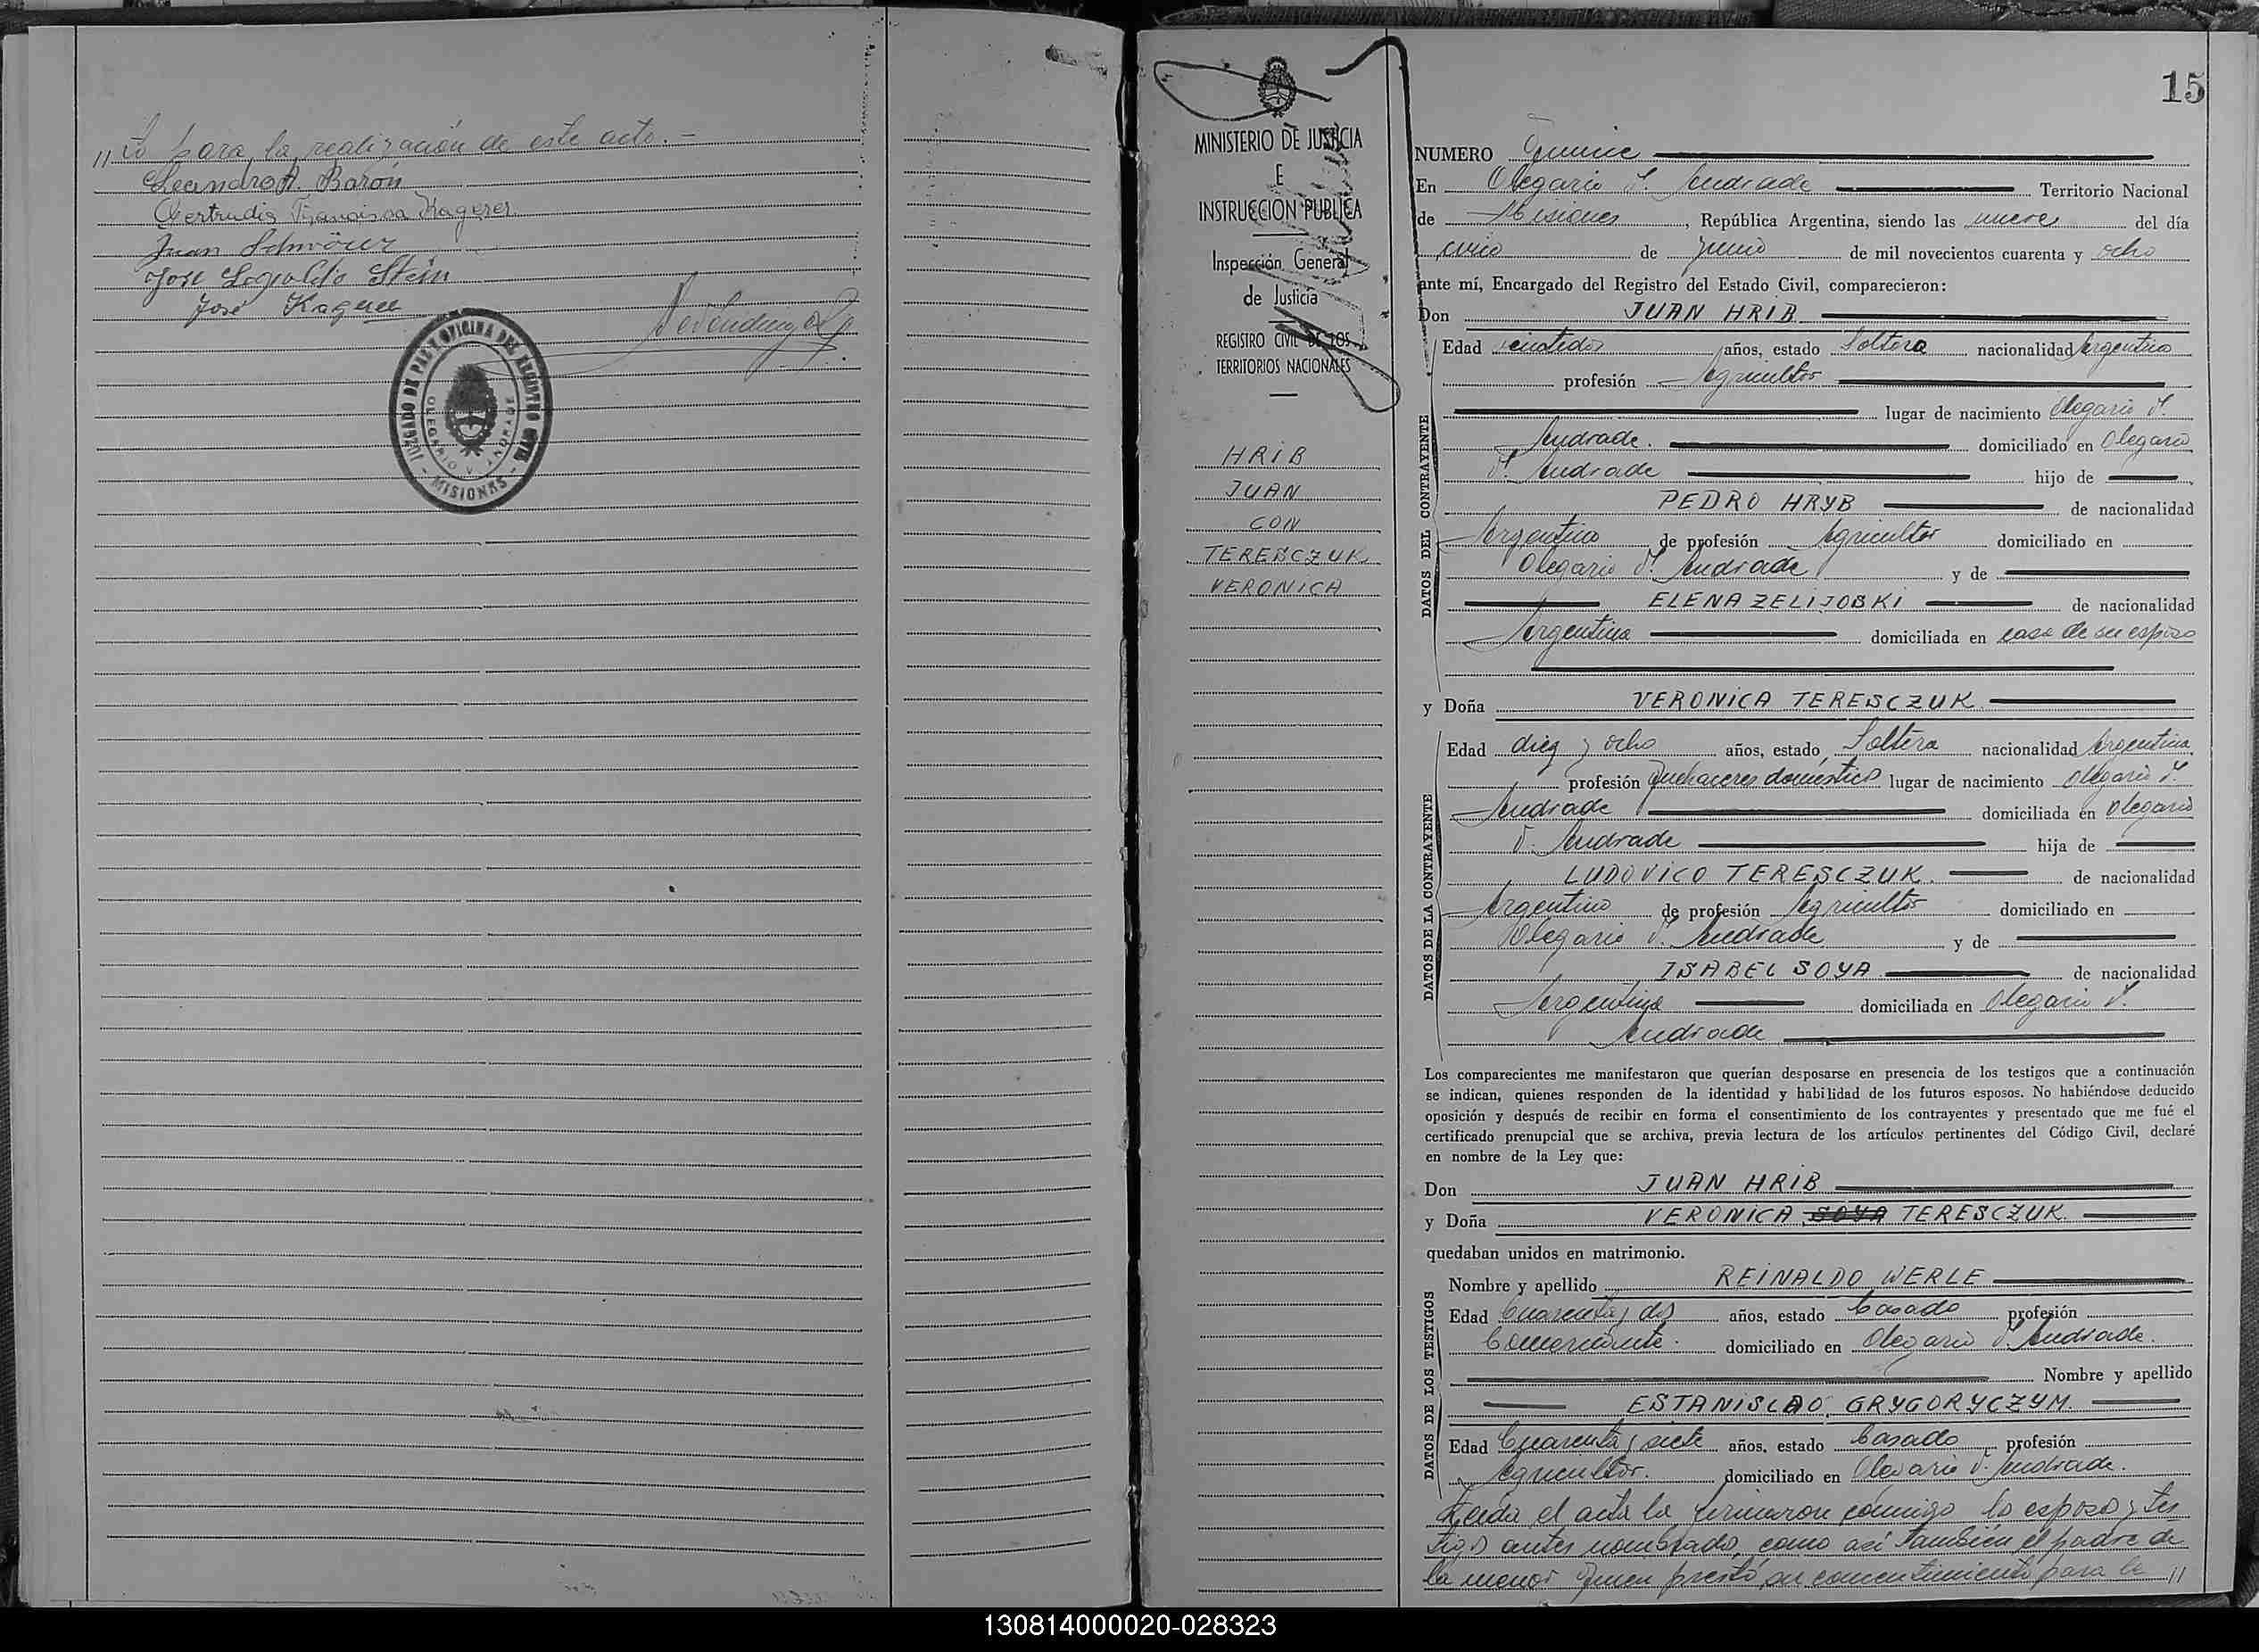 // to para la realización de este acto. —
Leandro A. Barón
Gertrudis Francisca Kagerer
Juan Schmöur
José Leopoldo Stein
José Kagerer
JUZGADO DE PAZ Y OFICINA DEL REGISTRO CIVIL
OLEGARIO V. ANDRADE
- MISIONES -
15
MINISTERIO DE JUSTICIA
E
INSTRUCCIÓN PUBLICA
Inspección General
de Justicia
REGISTRO CIVIL DE LOS
TERRITORIOS NACIONALES
HRIB
JUAN
CON
TERESCZUK
VERONICA
NUMERO Quince
En Olegario V. Andrade Territorio Nacional
de Misiones, República Argentina, siendo las nueve del día
cinco de junio de mil novecientos cuarenta y ocho
ante mí, Encargado del Registro del Estado Civil, comparecieron:
Don JUAN HRIB
DATOS DEL CONTRAYENTE
Edad veintidos años, estado Soltero nacionalidad Argentino
profesión Agricultor
lugar de nacimiento Olegario V.
Andrade. domiciliado en Olegario
V. Andrade hijo de
PEDRO HRYB de nacionalidad
Argentino de profesión Agricultor domiciliado en
Olegario V. Andrade y de
ELENA ZELIJOBKI de nacionalidad
Argentina domiciliada en casa de su esposo
y Doña VERONICA TERESCZUK
DATOS DE LA CONTRAYENTE
Edad diez y ocho años, estado Soltera nacionalidad Argentina
profesión Quehaceres domésticos lugar de nacimiento Olegario V.
Andrade domiciliada en Olegario
V. Andrade hija de
LUDOVICO TERESCZUK. de nacionalidad
Argentino de profesión Agricultor domiciliado en
Olegario V. Andrade y de
ISABEL SOYA de nacionalidad
Argentina domiciliada en Olegario V.
Andrade
Los comparecientes me manifestaron que querían desposarse en presencia de los testigos que a continuación
se indican, quienes responden de la identidad y habilidad de los futuros esposos. No habiéndose deducido
oposición y después de recibir en forma el consentimiento de los contrayentes y presentado que me fué el
certificado prenupcial que se archiva, previa lectura de los artículos pertinentes del Código Civil, declaré
en nombre de la Ley que:
Don JUAN HRIB
y Doña VERONICA SOYA TERESCZUK
quedaban unidos en matrimonio.
DATOS DE LOS TESTIGOS
Nombre y apellido REINALDO WERLE
Edad Cuarenta y dos años, estado Casado profesión
Comerciante. domiciliado en Olegario V. Andrade.
Nombre y apellido
ESTANISLAO GRYGORYCZYM
Edad Cuarenta y siete años, estado Casado profesión
Agricultor. domiciliado en Olegario V. Andrade.
Leida el acta la firmaron conmigo los esposos y tes
tigos antes nombrados, como así también el padre de
la menor quien prestó su consentimiento para la //
130814000020-028323